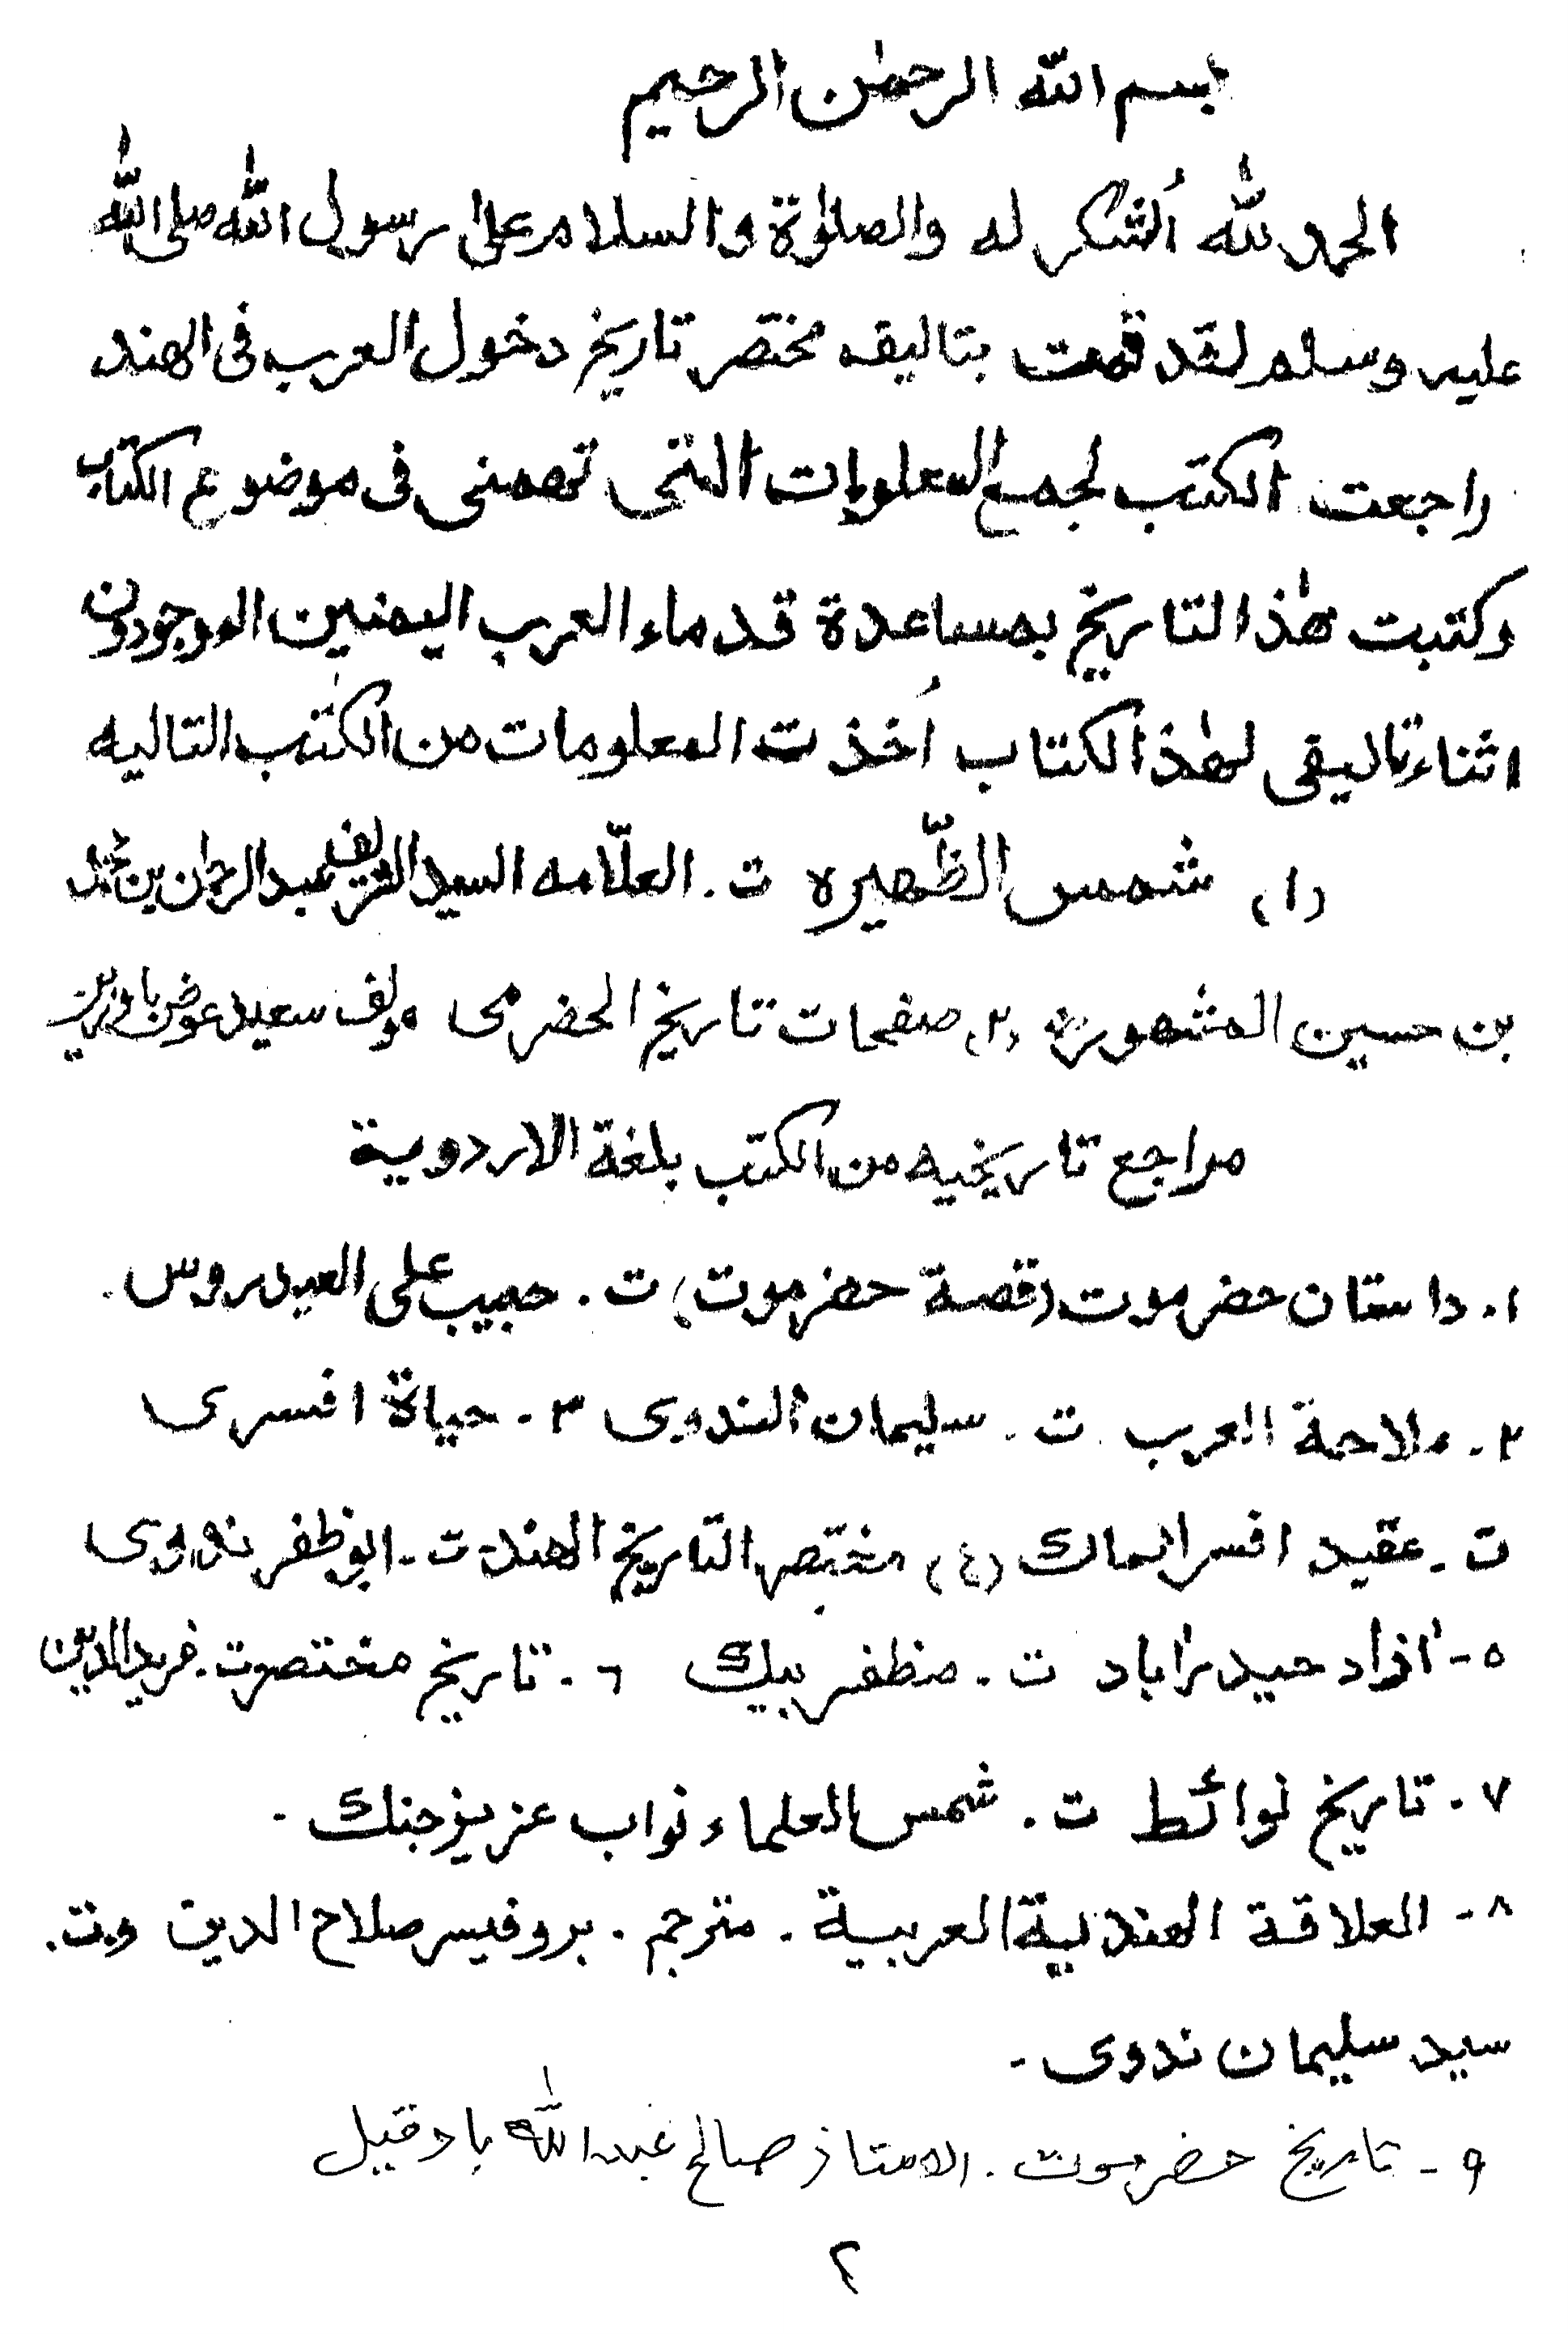 بسم الله الرحمٰن الرحيم
الحمد لله اُلشكر له والصلوٰة والسلام علىٰ رسول الله صلى الله
عليه وسلم لقد قمت بتاليف مختصر تاريخ دخول العرب فى الهند
راجعت الكتب لجمع المعلومات التى تهمنى فى موضوع الكتاب
وكتبت هٰذا التاريخ بمساعدة قدماء العرب اليمنين الموجودون
اثناء تاليفى لهٰذا الكتاب اُخذت المعلومات من الكتب التاليه
(١) شمس الظّهيره ت. العلّامه السيد الشريف عبد الرحمان بن محمد
بن حسين المشهور (٢) صفحات تاريخ الحضرمى مولف سعيد عوض باوزير
مراجع تاريخيه من الكتب بلغة الاردوية
١. داستان حضرموت (قصة حضرموت) ت. حبيب على العيدروس.
٢. ملاحة العرب ت. سليمان الندوى ٣. حياة افسرى
ت. عقيد افسر الملك (٤) مختصر التاريخ الهند ت. ابو ظفر ندوى
٥- اذاد حيدراباد ت. مظفر بيك ٦. تاريخ مختصر ت. فريد الدين
٧. تاريخ نوائط ت. شمس العلماء نواب عزيز جنك.
٨- العلاقة الهندية العربية. مترجم. بروفيسر صلاح الدين و.ت.
سيد سليمان ندوى.
٩- تاريخ حضرموت. الاستاذ صالح عبد الله باوقيل
٢